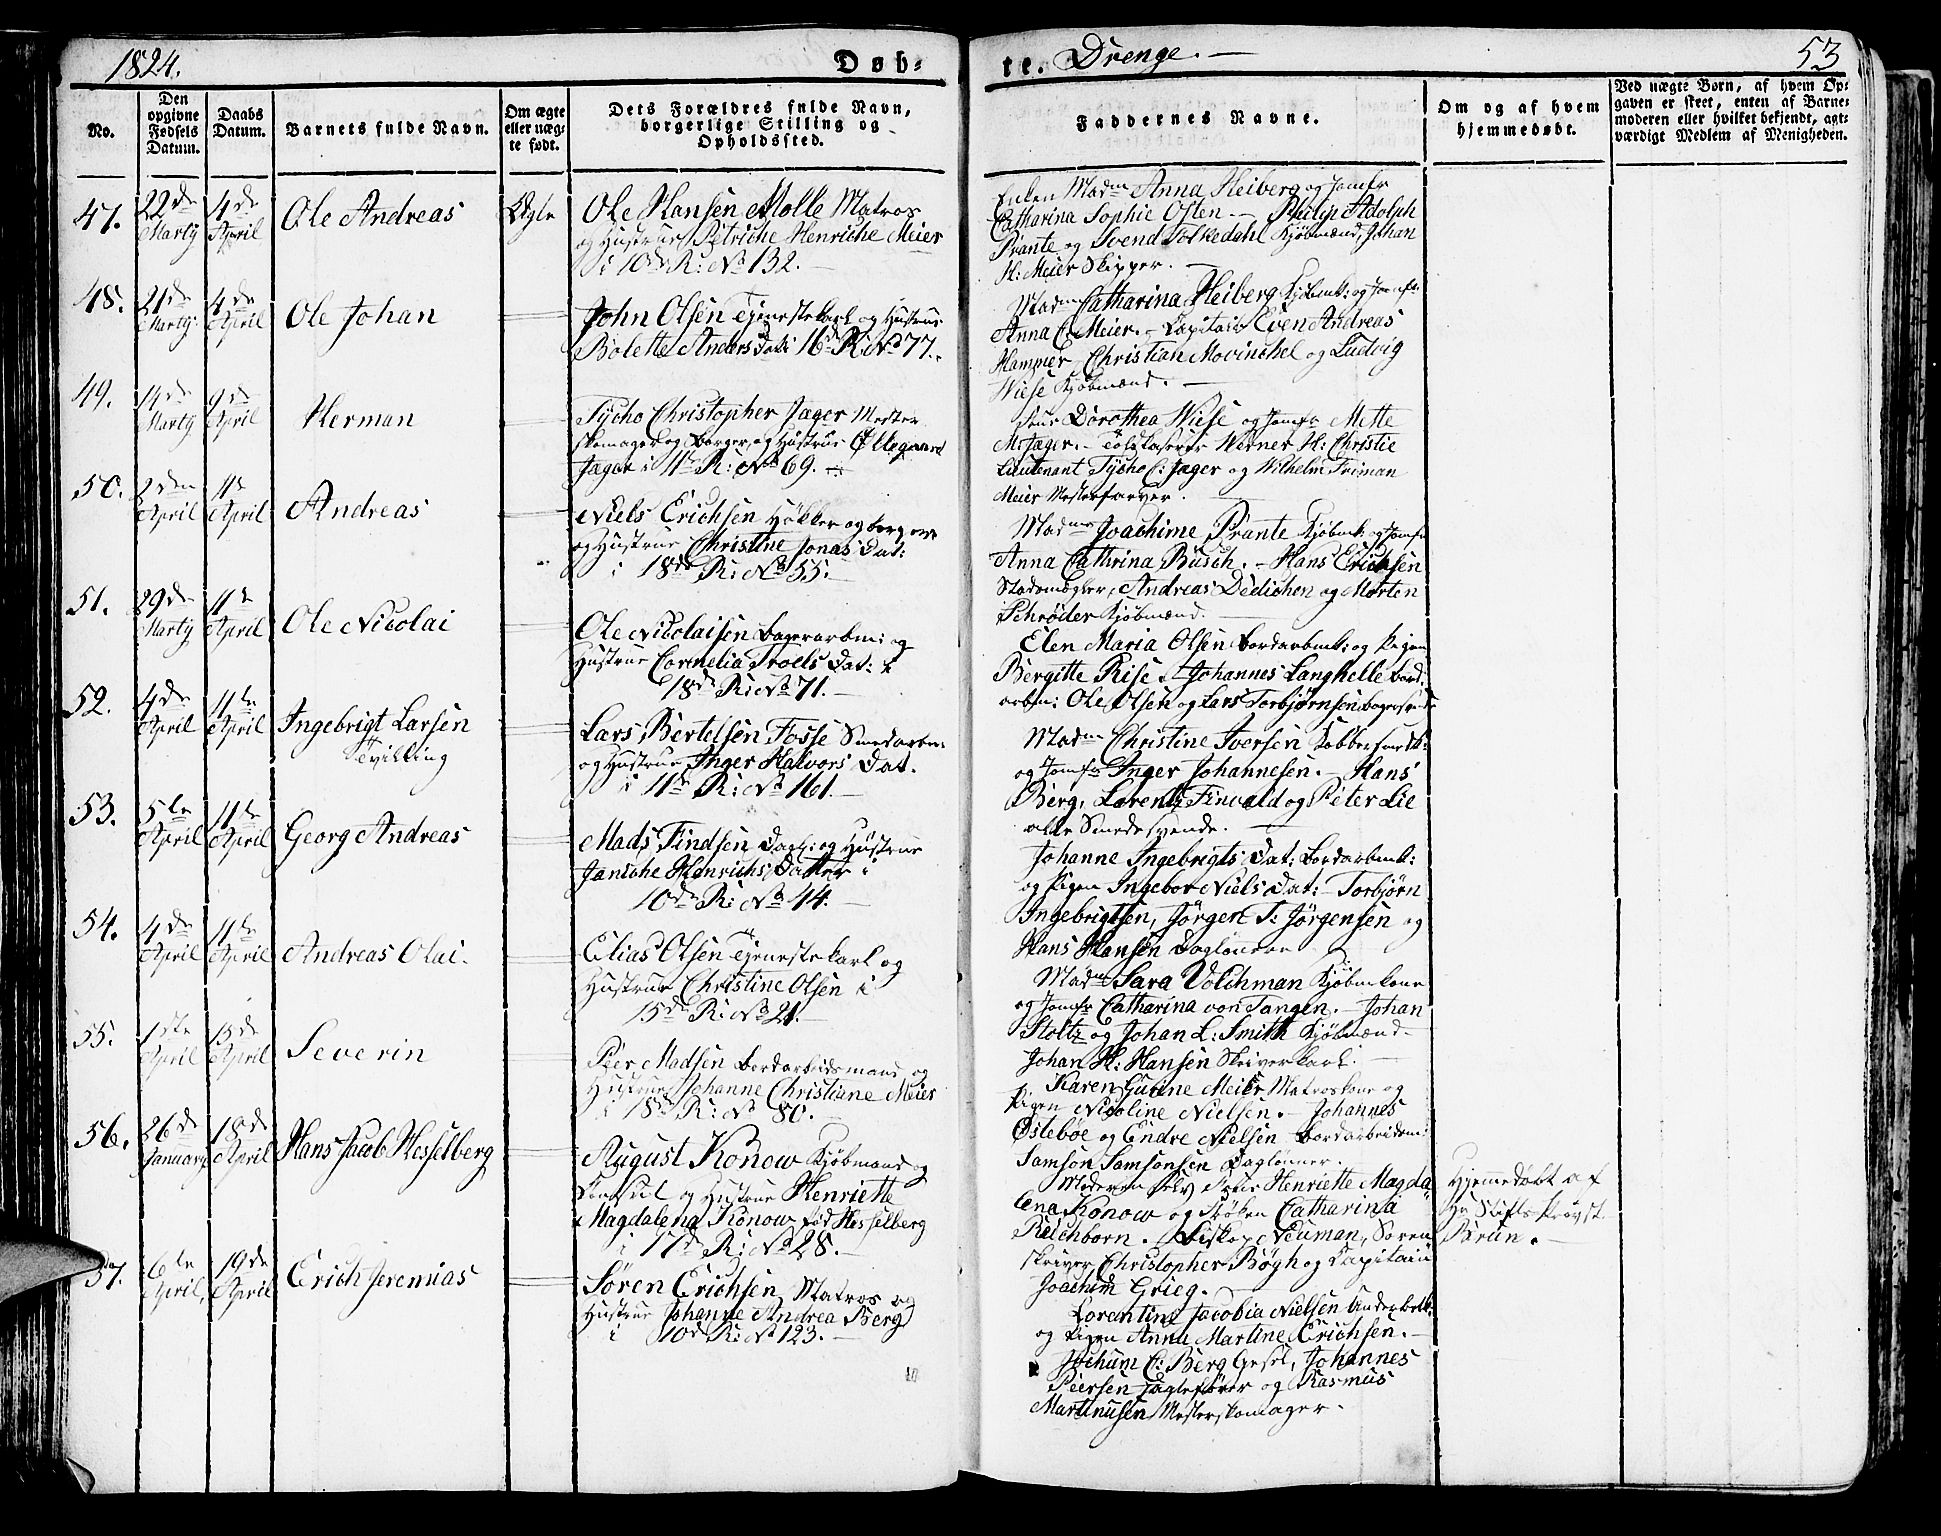 1824.
Døb-
te. Drenge. —
53
No.
Den opgivne Fødsels Datum.
Daabs Datum.
Barnets fulde Navn.
Om ægte eller uægte født.
Dets Forældres fulde Navn, borgerlige Stilling og Opholdssted.
Faddernes Navne.
Om og af hvem hjemmedøbt.
Ved uægte Børn, af hvem Opgaven er skeet, enten af Barnemoderen eller hvilket bekjendt, agtværdigt Medlem af Menigheden.
47. 22de Martij 4de April Ole Andreas Ægte
Ole Hansen Molle Matros
og Hustrue Petriche Henriche Meier
i 10de R: No 132. —
Enken Madm Anna Heiberg og Jomfr
Catharina Sophie Osten. — Philip Adolph
Prante og Svend Folkedahl Kjøbmænd, Johan
H: Meier Skipper. —
48. 21de Martij 4de April Ole Johan
John Olsen Tjenestekarl og Hustrue
Bolette Anders Dat: 16de R No 77.
Madm Catharina Heiberg Kjøbmk: og Jomfr:
Anna C Meier. — Capitain Even Andreas
Hammer, Christian Mowinchel og Ludvig
Wiese Kjøbmænd. —
49. 14de Martij 9de April Herman
Tycho Christopher Jæger Mester
skomager og Borger, og Hustrue Øllegaard
Jæger i 11te R: No 69.
Frue Dorothea Wiese og Jomfr Mette
M: Jæger. — Toldkaserer Werner H: Christie
Lieutenant Tycho C: Jæger og Wilhelm Friman
Meier Mesterfarver.
50. 2den April 11te April Andreas
Niels Erichsen Høkker og Borger
og Hustrue Christine Jonas Dat:
i 18de R: No 55.
Madme Joachime Prante Kjøbmk: og Jomfr
Anna Cathrina Busch. — Hans Erichsen
Stadsmægler, Andreas Dedichen og Morten
Schrøder Kjøbmænd.
51. 29de Martij 11te April Ole Nicolai
Ole Nicolaisen Bagerarbm: og
Hustrue Cornelia Troels Dat: i
18de R: No 71. —
Elen Maria Olsen Bordarbmk: og Pigen
Bergitte Rise. — Johannes Langhelle Bord
arbm: Ole Olsen og Lars Torbjørnsen Bagersvende
52. 4de April 11te April Ingebrigt Larsen
Tvilling
Lars Bertelsen Fosse Smedarbm:
og Hustrue Inger Halvors Dat.
i 11te R: No 161. —
Madm Christine Iversen Kobbersmedk:
og Jomfr Inger Johannesen. — Hans
Berg, Lorentz Finvald og Peter Lie
alle Smedesvende. —
53. 5te April 11te April Georg Andreas
Mads Findsen Dagl: og Hustrue
Janiche Henrichs Datter i
10de R: No 44. —
Johanne Ingebrigts Dat: Bordarbmk:
og Pigen Ingebor Niels Dat: — Torbjørn
Ingebrigtsen, Jørgen T: Jørgensen og
Hans Hansen Daglønnere
54. 4de April 11te April Andreas Olai.
Elias Olsen Tjenestekarl og
Hustrue Christine Olsen i
15de R: No 21. —
Madm Sara Volchman Kjøbmkone
og Jomfr Catharina von Tangen. — Johan
Stoltz og Johan L: Smith Kjøbmænd —
Johan H: Hansen Skriverkarl. —
55. 1ste April 15de April Severin
Peer Madsen Bordarbeidsmand og
Hustrue Johanne Christiane Meier
i 18de R: No 80. —
Karen Gurine Meier Matroskone og
Pigen Nicoline Nielsen. — Johannes
Østebøe og Endre Nielsen Bordarbeidsm:
Samson Samsonsen Daglønner.
56. 26de January 18de April Hans Jacob Hesselberg
August Konow Kjøbmand og
Konsul og Hustrue Henriette
Magdalena Konow fød Hesselberg
i 17de R: No 28. —
Moderen selv Frue Henriette Magda
lena Konow og Frøken Catharina
Reichborn. — Biskop Neuman, Soren
skriver Christopher Bøgh og Capitain
Joachim Grieg. —
Hjemmedøbt af
Hr Stiftsprovst
Brun. —
57. 6te April, 19de April Erich Jeremias
Søren Erichsen Matros og
Hustrue Johanne Andrea Berg
i 10de R: No 123. —
Lorentine Jacobia Nielsen
og Pigen Anne Martine Erichsen. —
Jochum C: Berg Gesel, Johannes
Peersen og Rasmus
Martinusen Mesterskomager.